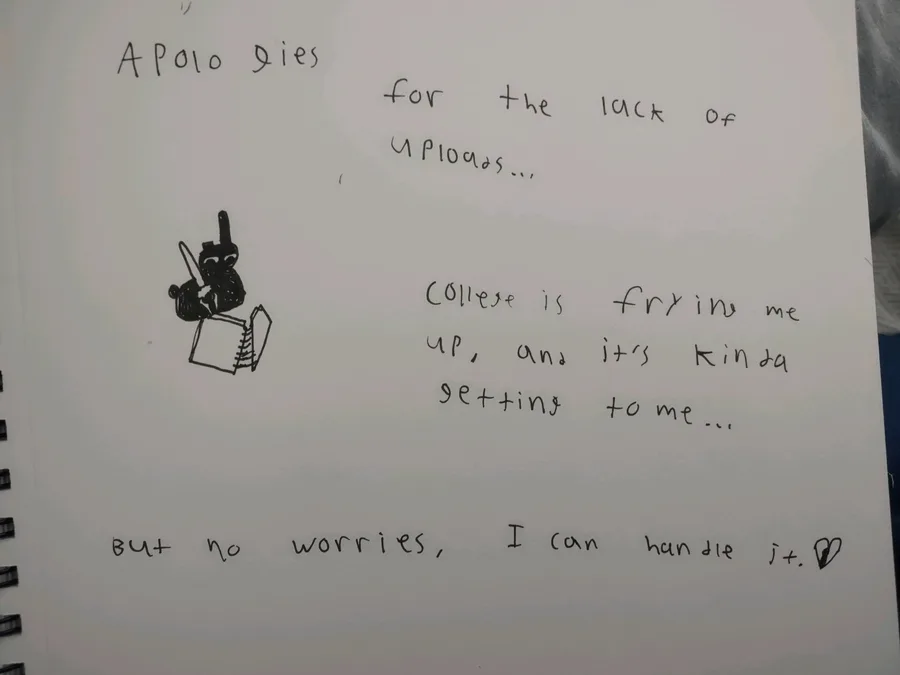 APOlO gies
for the lack of
uploads...
College is frying me
up, and it's kinda
getting to me...
But no worries, I can handle it.